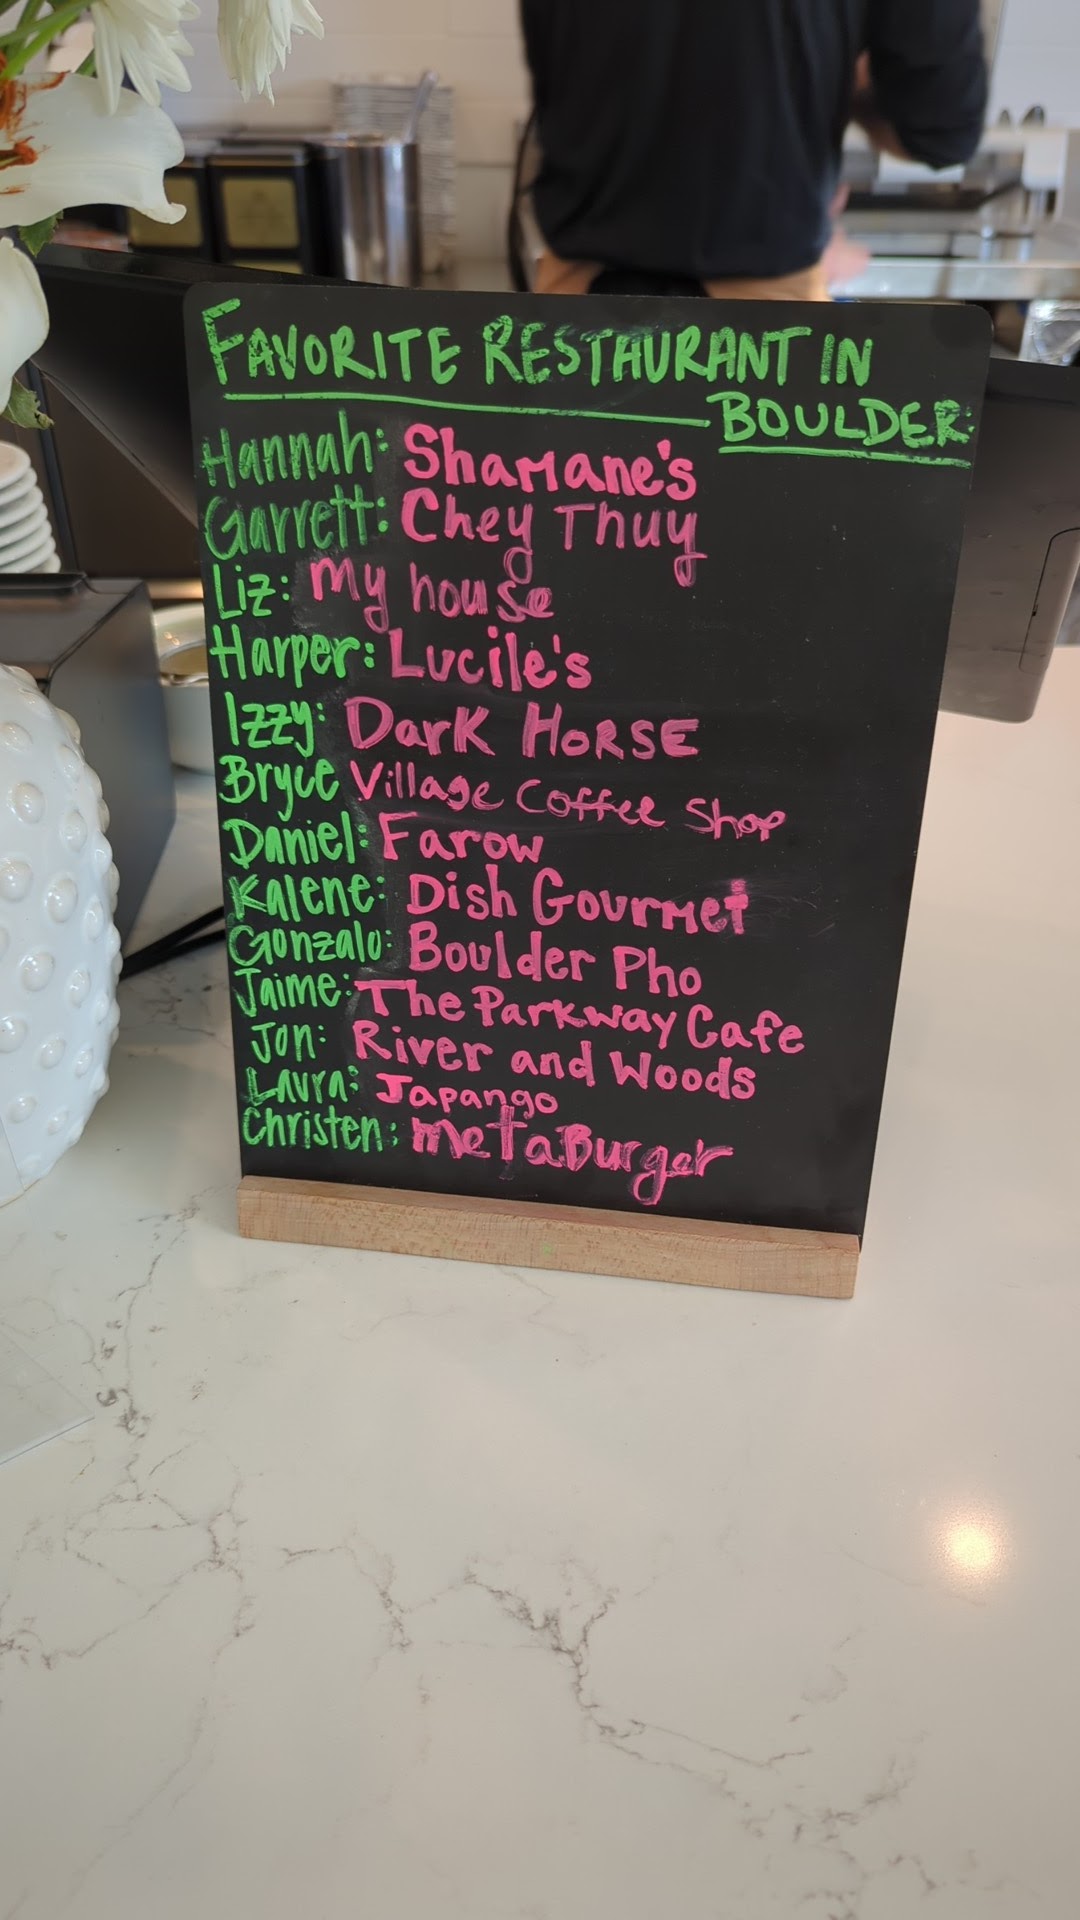 FAVORITE RESTAURANT IN
BOULDER:
Hannah: Shamane's
Garrett: Chey Thuy
Liz: my house
Harper: Lucile's
Izzy: Dark HORSE
Bryce Village Coffee Shop
Daniel: Farow
Kalene: Dish Gourmet
Gonzalo: Boulder Pho
Jaime: The Parkway Cafe
Jon: River and Woods
Laura: Japango
Christen: metaBurger